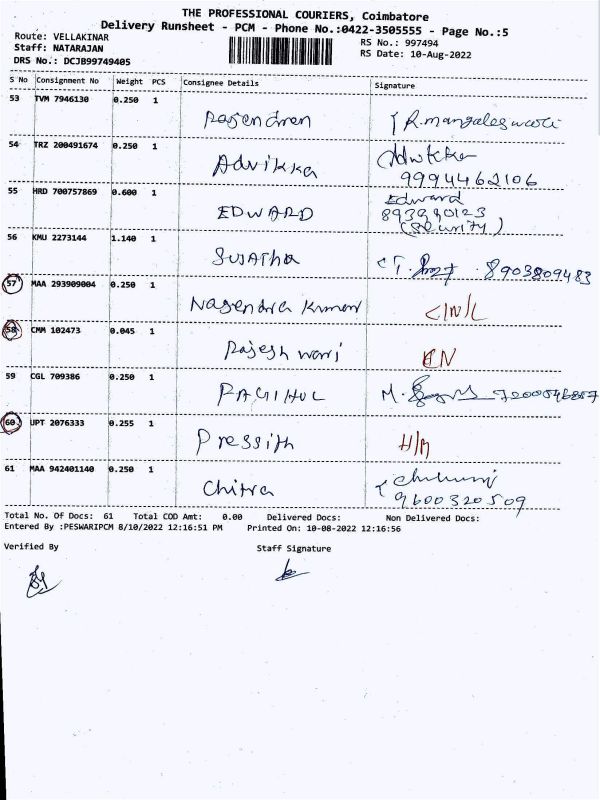 THE PROFESSIONAL COURIERS, Coimbatore
Delivery Runsheet - PCM - Phone No.:0422-3505555 - Page No.:5
Route: VELLAKINAR
RS No.: 997494
Staff: NATARAJAN
RS Date: 10-Aug-2022
DRS No.: DCJB99749405
S No Consignment No Weight PCS Consignee Details Signature
53 TVM 7946130 0.250 1 Rajendran R. mangaleswari
54 TRZ 200491674 0.250 1 Advikka
9994462106
55 HRD 700757869 0.600 1 EDWARD Edward
(Security)
56 KMU 2273144 1.140 1 Sujatha T. 8903809483
57 MAA 293909004 0.250 1 Nagendra Kumar C/N/L
58 CMM 102473 0.045 1 Rajeshwari CN
59 CGL 709386 0.250 1 RAGIHUL M.
60 UPT 2076333 0.255 1 Pressith H/M
61 MAA 942401140 0.250 1 Chitra
9600320509
Total No. Of Docs: 61 Total COD Amt: 0.00 Delivered Docs: Non Delivered Docs:
Entered By :PESWARIPCM 8/10/2022 12:16:51 PM Printed On: 10-08-2022 12:16:56
Verified By Staff Signature